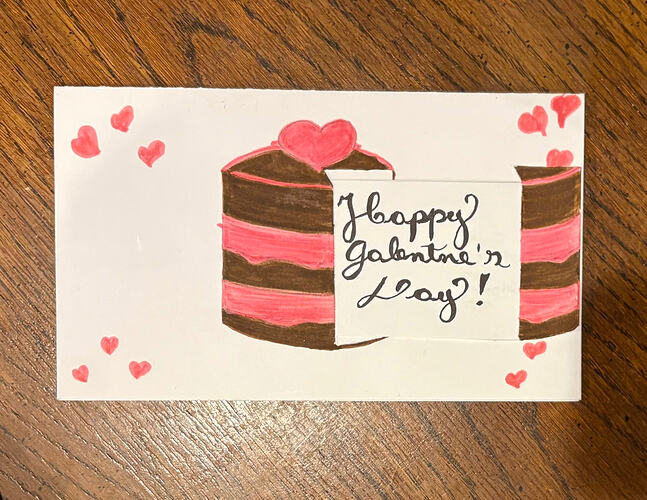 Happy
galentine's
Day!